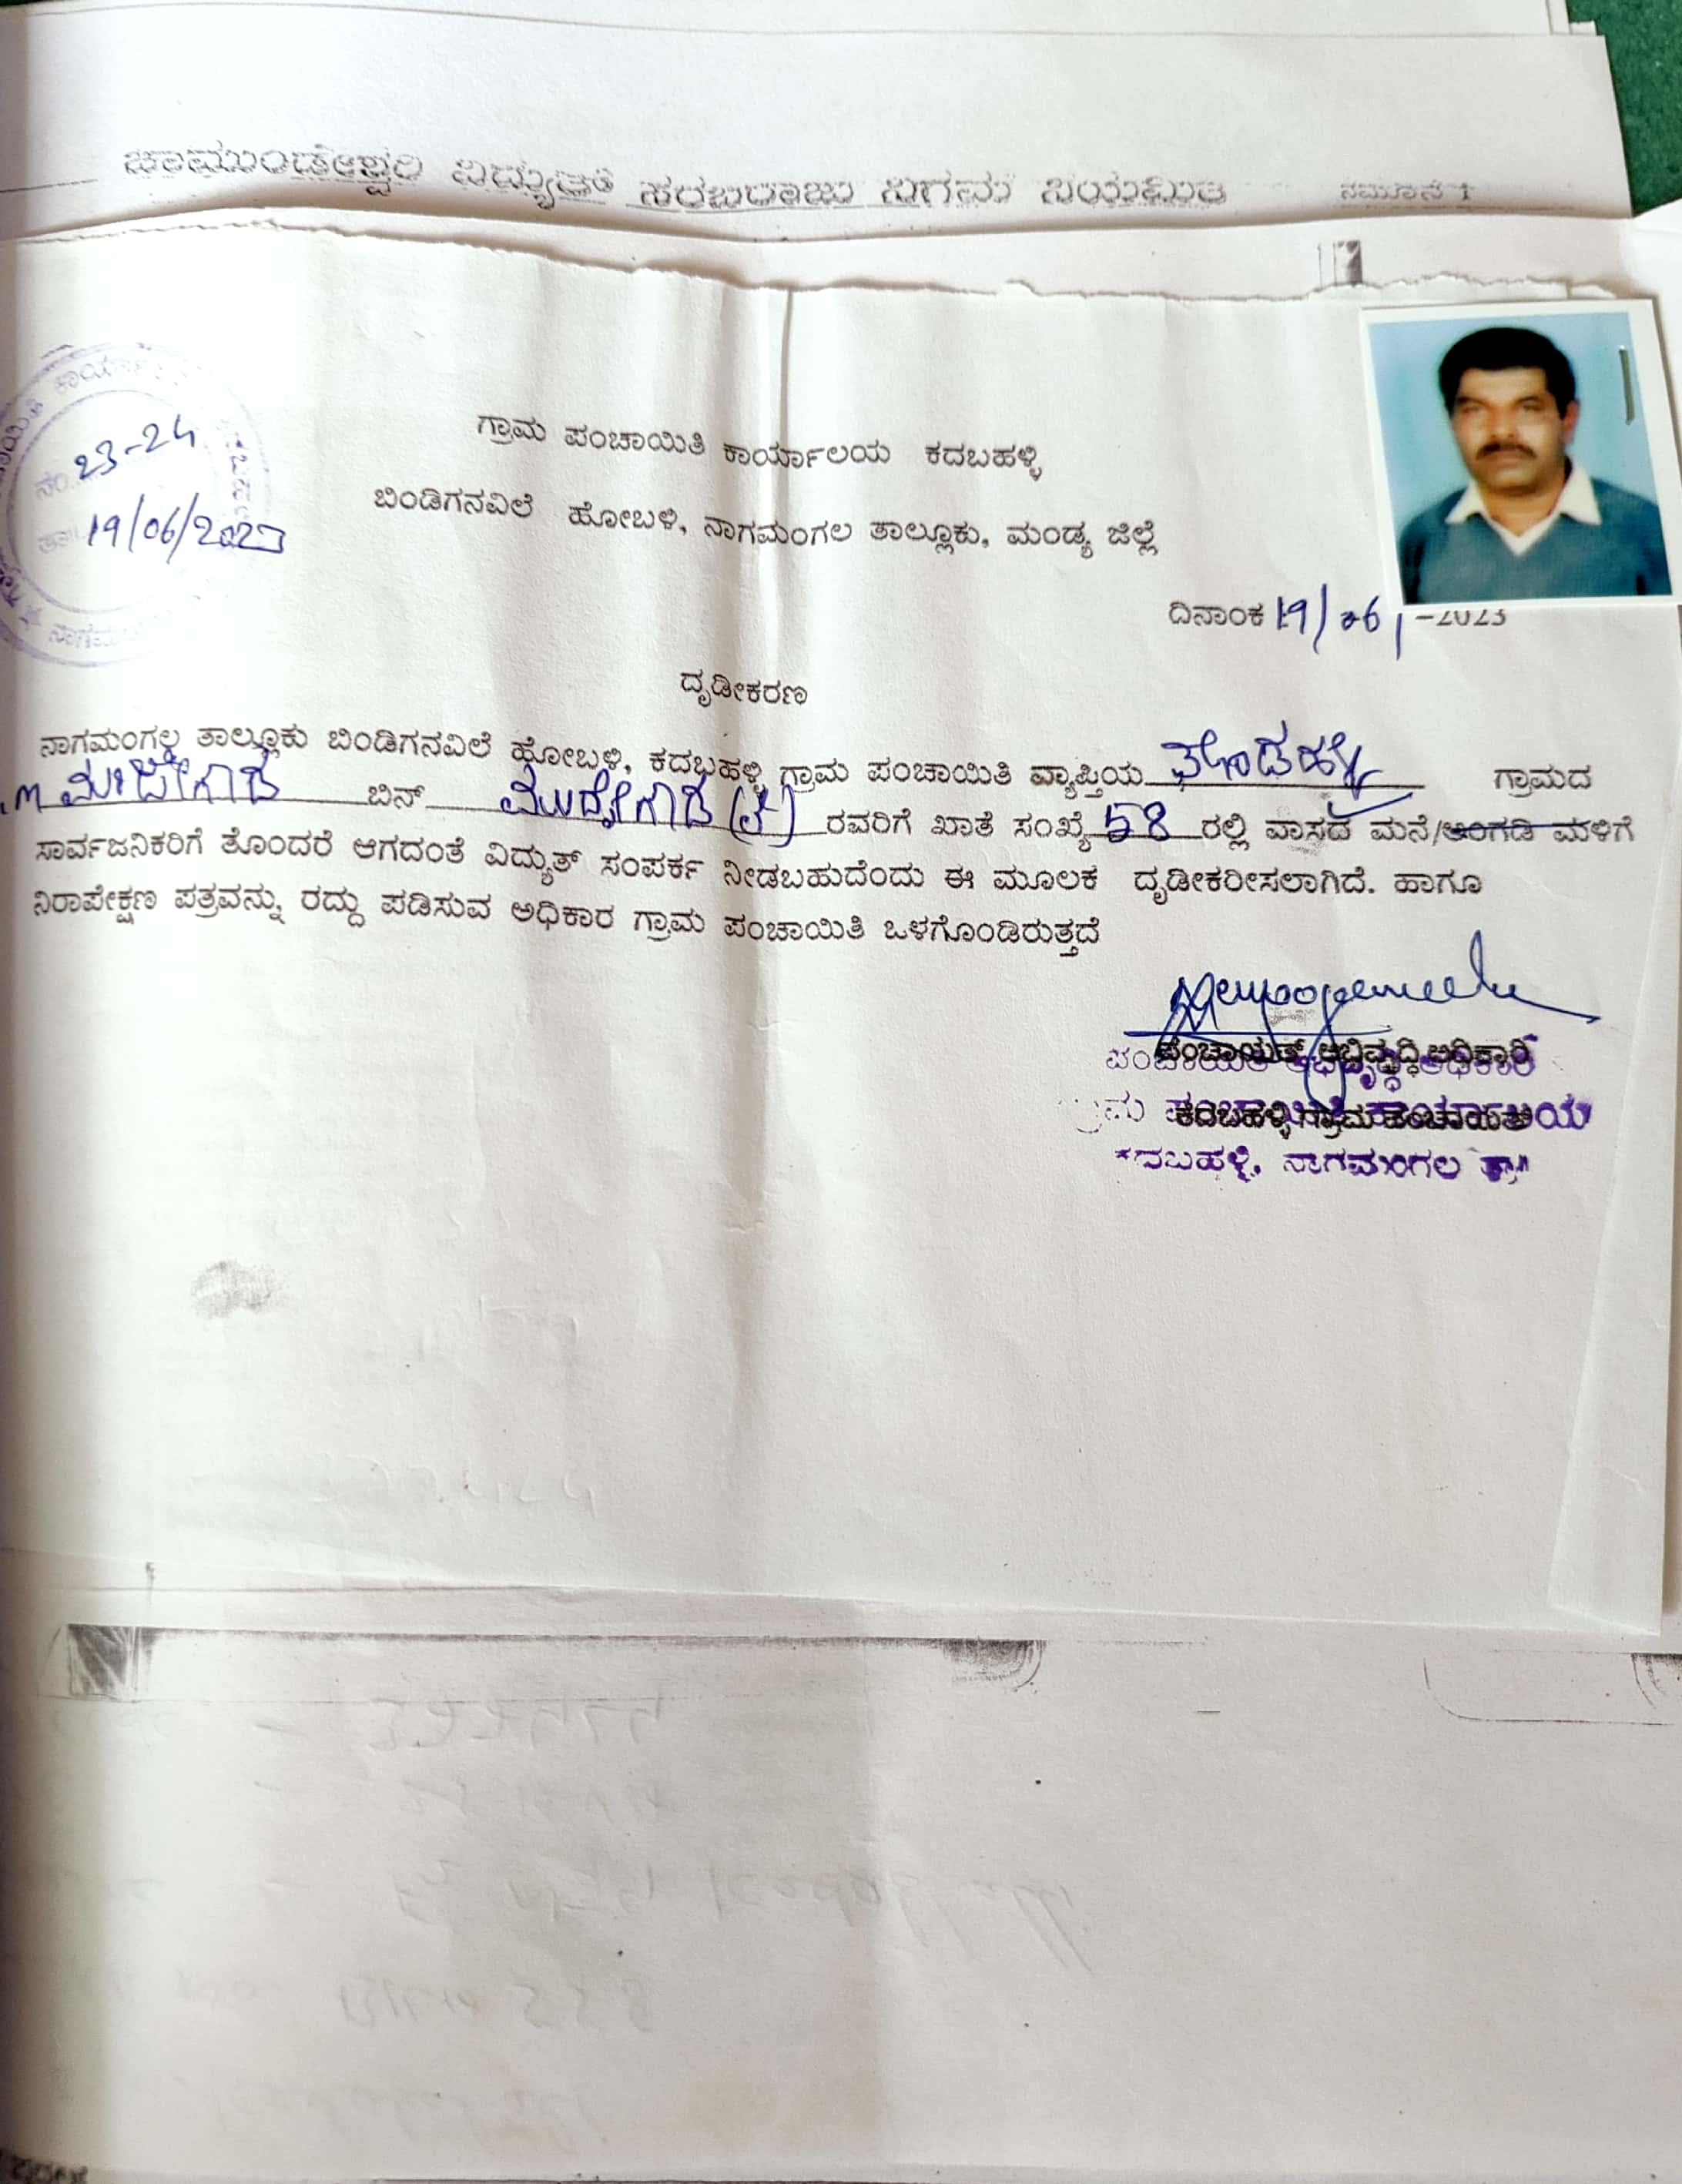 ಚಾಮುಂಡೇಶ್ವರಿ ವಿದ್ಯುತ್ ಸರಬರಾಜು ನಿಗಮ ನಿಯಮಿತ ನಮೂನೆ 1
23-24
19/06/2023
ಗ್ರಾಮ ಪಂಚಾಯಿತಿ ಕಾರ್ಯಾಲಯ ಕದಬಹಳ್ಳಿ
ಬಿಂಡಿಗನವಿಲೆ ಹೋಬಳಿ, ನಾಗಮಂಗಲ ತಾಲ್ಲೂಕು, ಮಂಡ್ಯ ಜಿಲ್ಲೆ
ದಿನಾಂಕ 19/06/-2023
ದೃಡೀಕರಣ
ನಾಗಮಂಗಲ ತಾಲ್ಲೂಕು ಬಿಂಡಿಗನವಿಲೆ ಹೋಬಳಿ, ಕದಬಹಳ್ಳಿ ಗ್ರಾಮ ಪಂಚಾಯಿತಿ ವ್ಯಾಪ್ತಿಯ ಗ್ರಾಮದ
ಬಿನ್ ರವರಿಗೆ ಖಾತೆ ಸಂಖ್ಯೆ 58 ರಲ್ಲಿ ವಾಸದ ಮನೆ/ಅಂಗಡಿ ಮಳಿಗೆ
ಸಾರ್ವಜನಿಕರಿಗೆ ತೊಂದರೆ ಆಗದಂತೆ ವಿದ್ಯುತ್ ಸಂಪರ್ಕ ನೀಡಬಹುದೆಂದು ಈ ಮೂಲಕ ದೃಡೀಕರೀಸಲಾಗಿದೆ. ಹಾಗೂ
ನಿರಾಪೇಕ್ಷಣ ಪತ್ರವನ್ನು ರದ್ದು ಪಡಿಸುವ ಅಧಿಕಾರ ಗ್ರಾಮ ಪಂಚಾಯಿತಿ ಒಳಗೊಂಡಿರುತ್ತದೆ
ಪಂಚಾಯತ್ ಅಭಿವೃದ್ಧಿ ಅಧಿಕಾರಿ
ಕದಬಹಳ್ಳಿ ಗ್ರಾಮ ಪಂಚಾಯಿತಿ
ಕದಬಹಳ್ಳಿ, ನಾಗಮಂಗಲ ತಾ॥